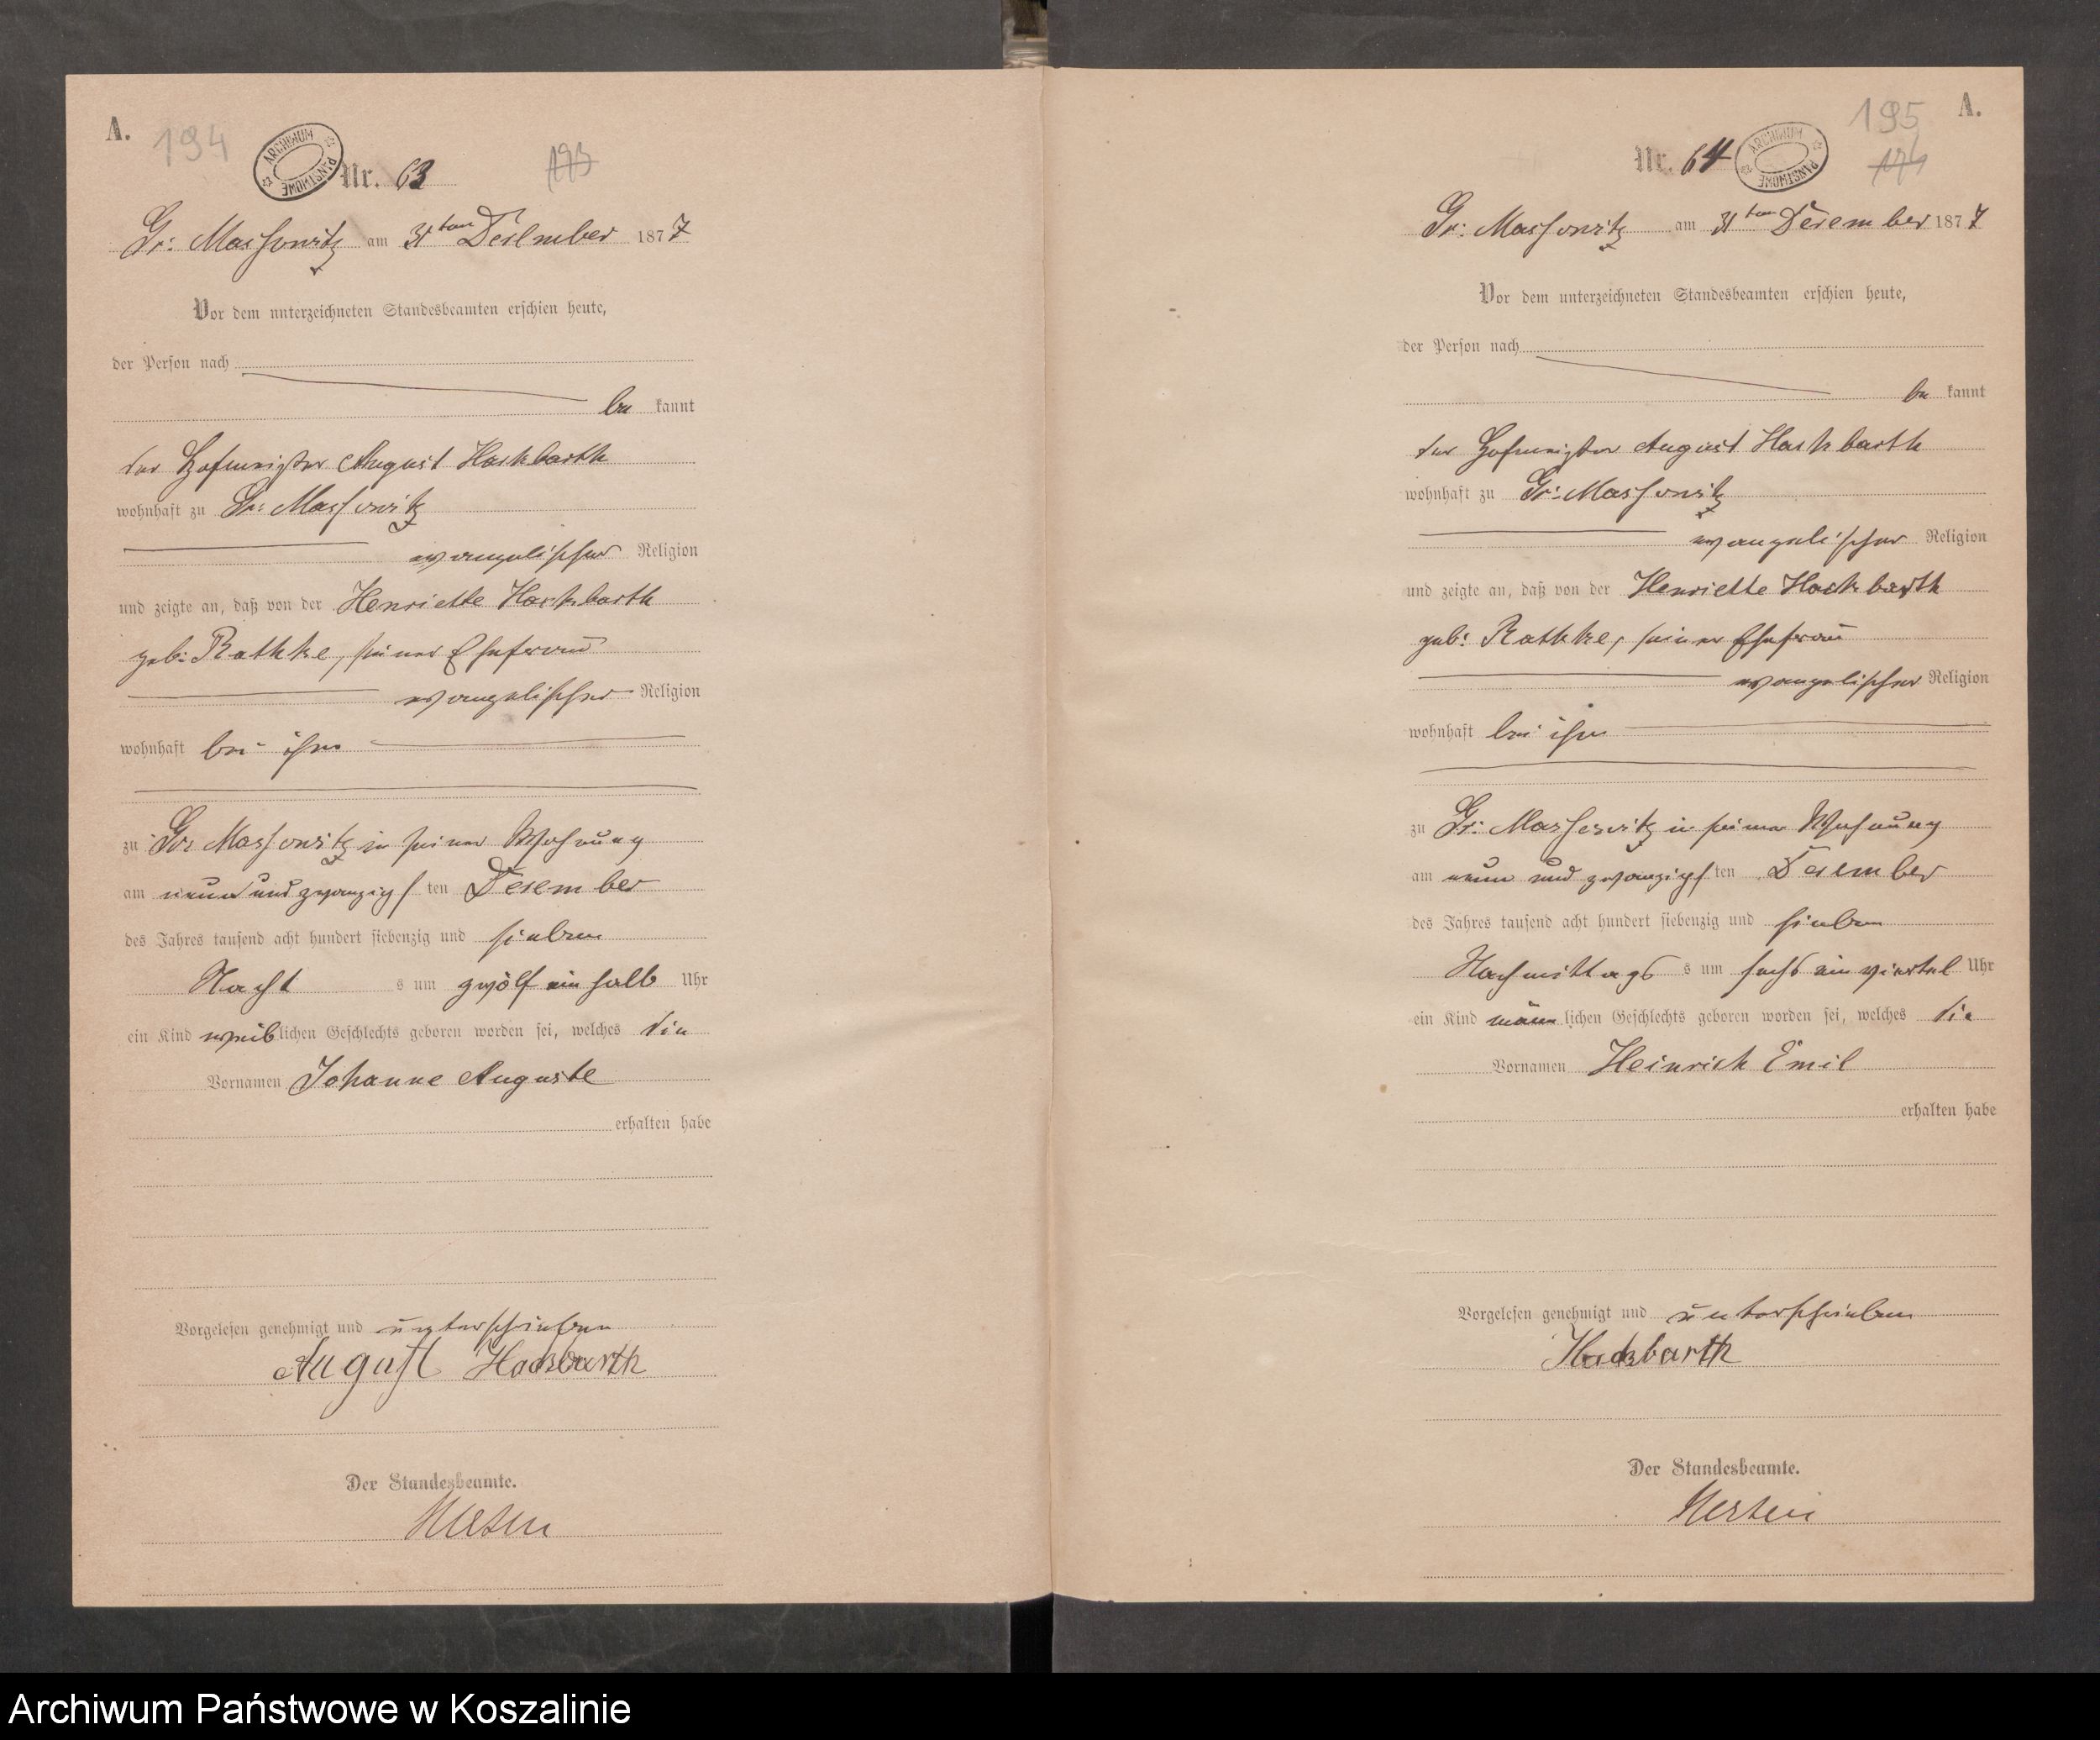 A.
194
ARCHIWUM PAŃSTWOWE
Nr. 63
193
Gr: Massowitz am 31ten Dezember 1877
Vor dem unterzeichneten Standesbeamten erschien heute,
der Person nach
be kannt
der Hofmeister August Hackbarth
wohnhaft zu Gr: Massowitz
evangelischer Religion
und zeigte an, daß von der Henriette Hackbarth
geb: Rathke, seiner Ehefrau
evangelischer Religion
wohnhaft bei ihm
zu Gr: Massowitz in seiner Wohnung
am neunundzwanzigsten Dezember
des Jahres tausend acht hundert siebenzig und sieben
Nacht s um zwölf ein halb Uhr
ein Kind weiblichen Geschlechts geboren worden sei, welches die
Vornamen Johanne Auguste
erhalten habe
Vorgelesen genehmigt und unterschrieben
August Hackbarth
Der Standesbeamte.
A.
195
ARCHIWUM PAŃSTWOWE
Nr. 64
194
Gr: Massowitz am 31ten Dezember 1877
Vor dem unterzeichneten Standesbeamten erschien heute,
der Person nach
be kannt
der Hofmeister August Hackbarth
wohnhaft zu Gr: Massowitz
evangelischer Religion
und zeigte an, daß von der Henriette Hackbarth
geb: Rathke, seiner Ehefrau
evangelischer Religion
wohnhaft bei ihm
zu Gr: Massowitz in seiner Wohnung
am neun und zwanzigsten Dezember
des Jahres tausend acht hundert siebenzig und sieben
Nachmittags s um sechs ein viertel Uhr
ein Kind männlichen Geschlechts geboren worden sei, welches die
Vornamen Heinrich Emil
erhalten habe
Vorgelesen genehmigt und unterschrieben
Hackbarth
Der Standesbeamte.
Archiwum Państwowe w Koszalinie